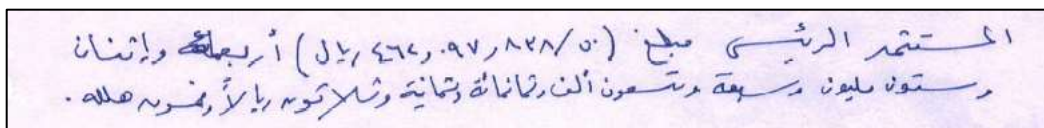 المستثمر الرئيسى مبلغ (٤٦٢,٠٩٧,٨٣٨/٥٠ ريال) أربعمائة وإثنان
وستون مليون وسبعة وتسعون ألف وثمانمائة وثمانية وثلاثون ريالاً وخمسون هلله .